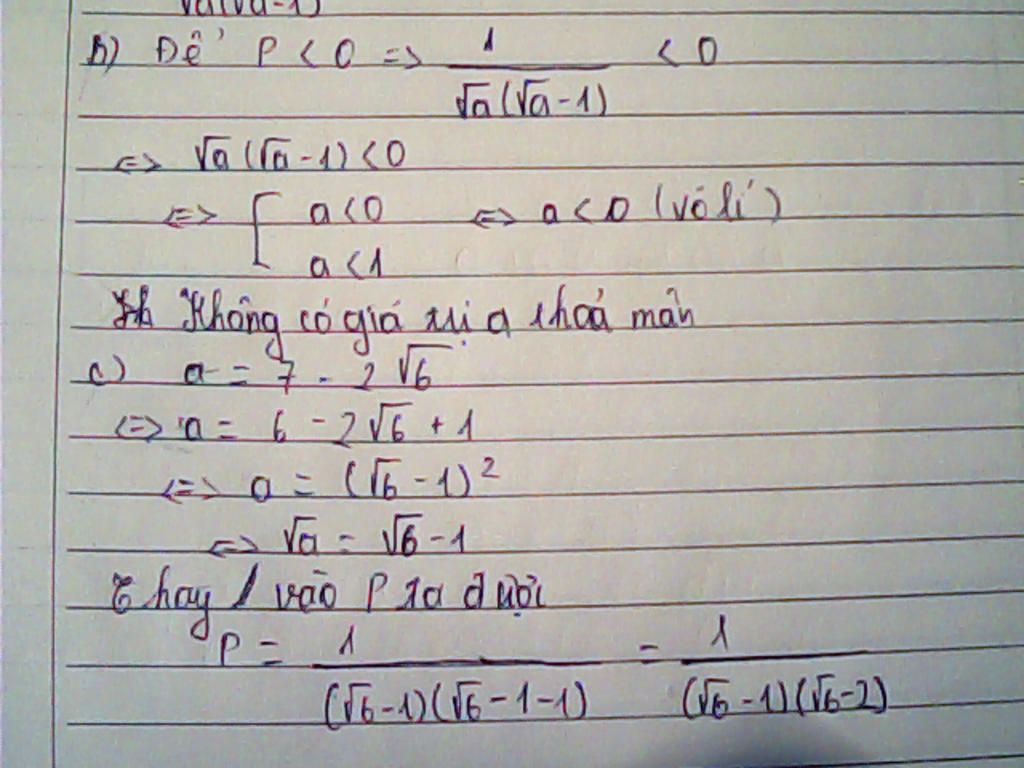 √a(√a-1)
b) Để P < 0 => 1/(√a(√a-1)) < 0
<=> √a(√a-1) < 0
<=> [ a < 0 <=> a < 0 (vô lí)
a < 1
Không có giá trị a thoả mãn
c) a = 7 - 2√6
<=> a = 6 - 2√6 + 1
<=> a = (√6-1)²
<=> √a = √6-1
Thay vào P ta được
P = 1/((√6-1)(√6-1-1)) = 1/((√6-1)(√6-2))